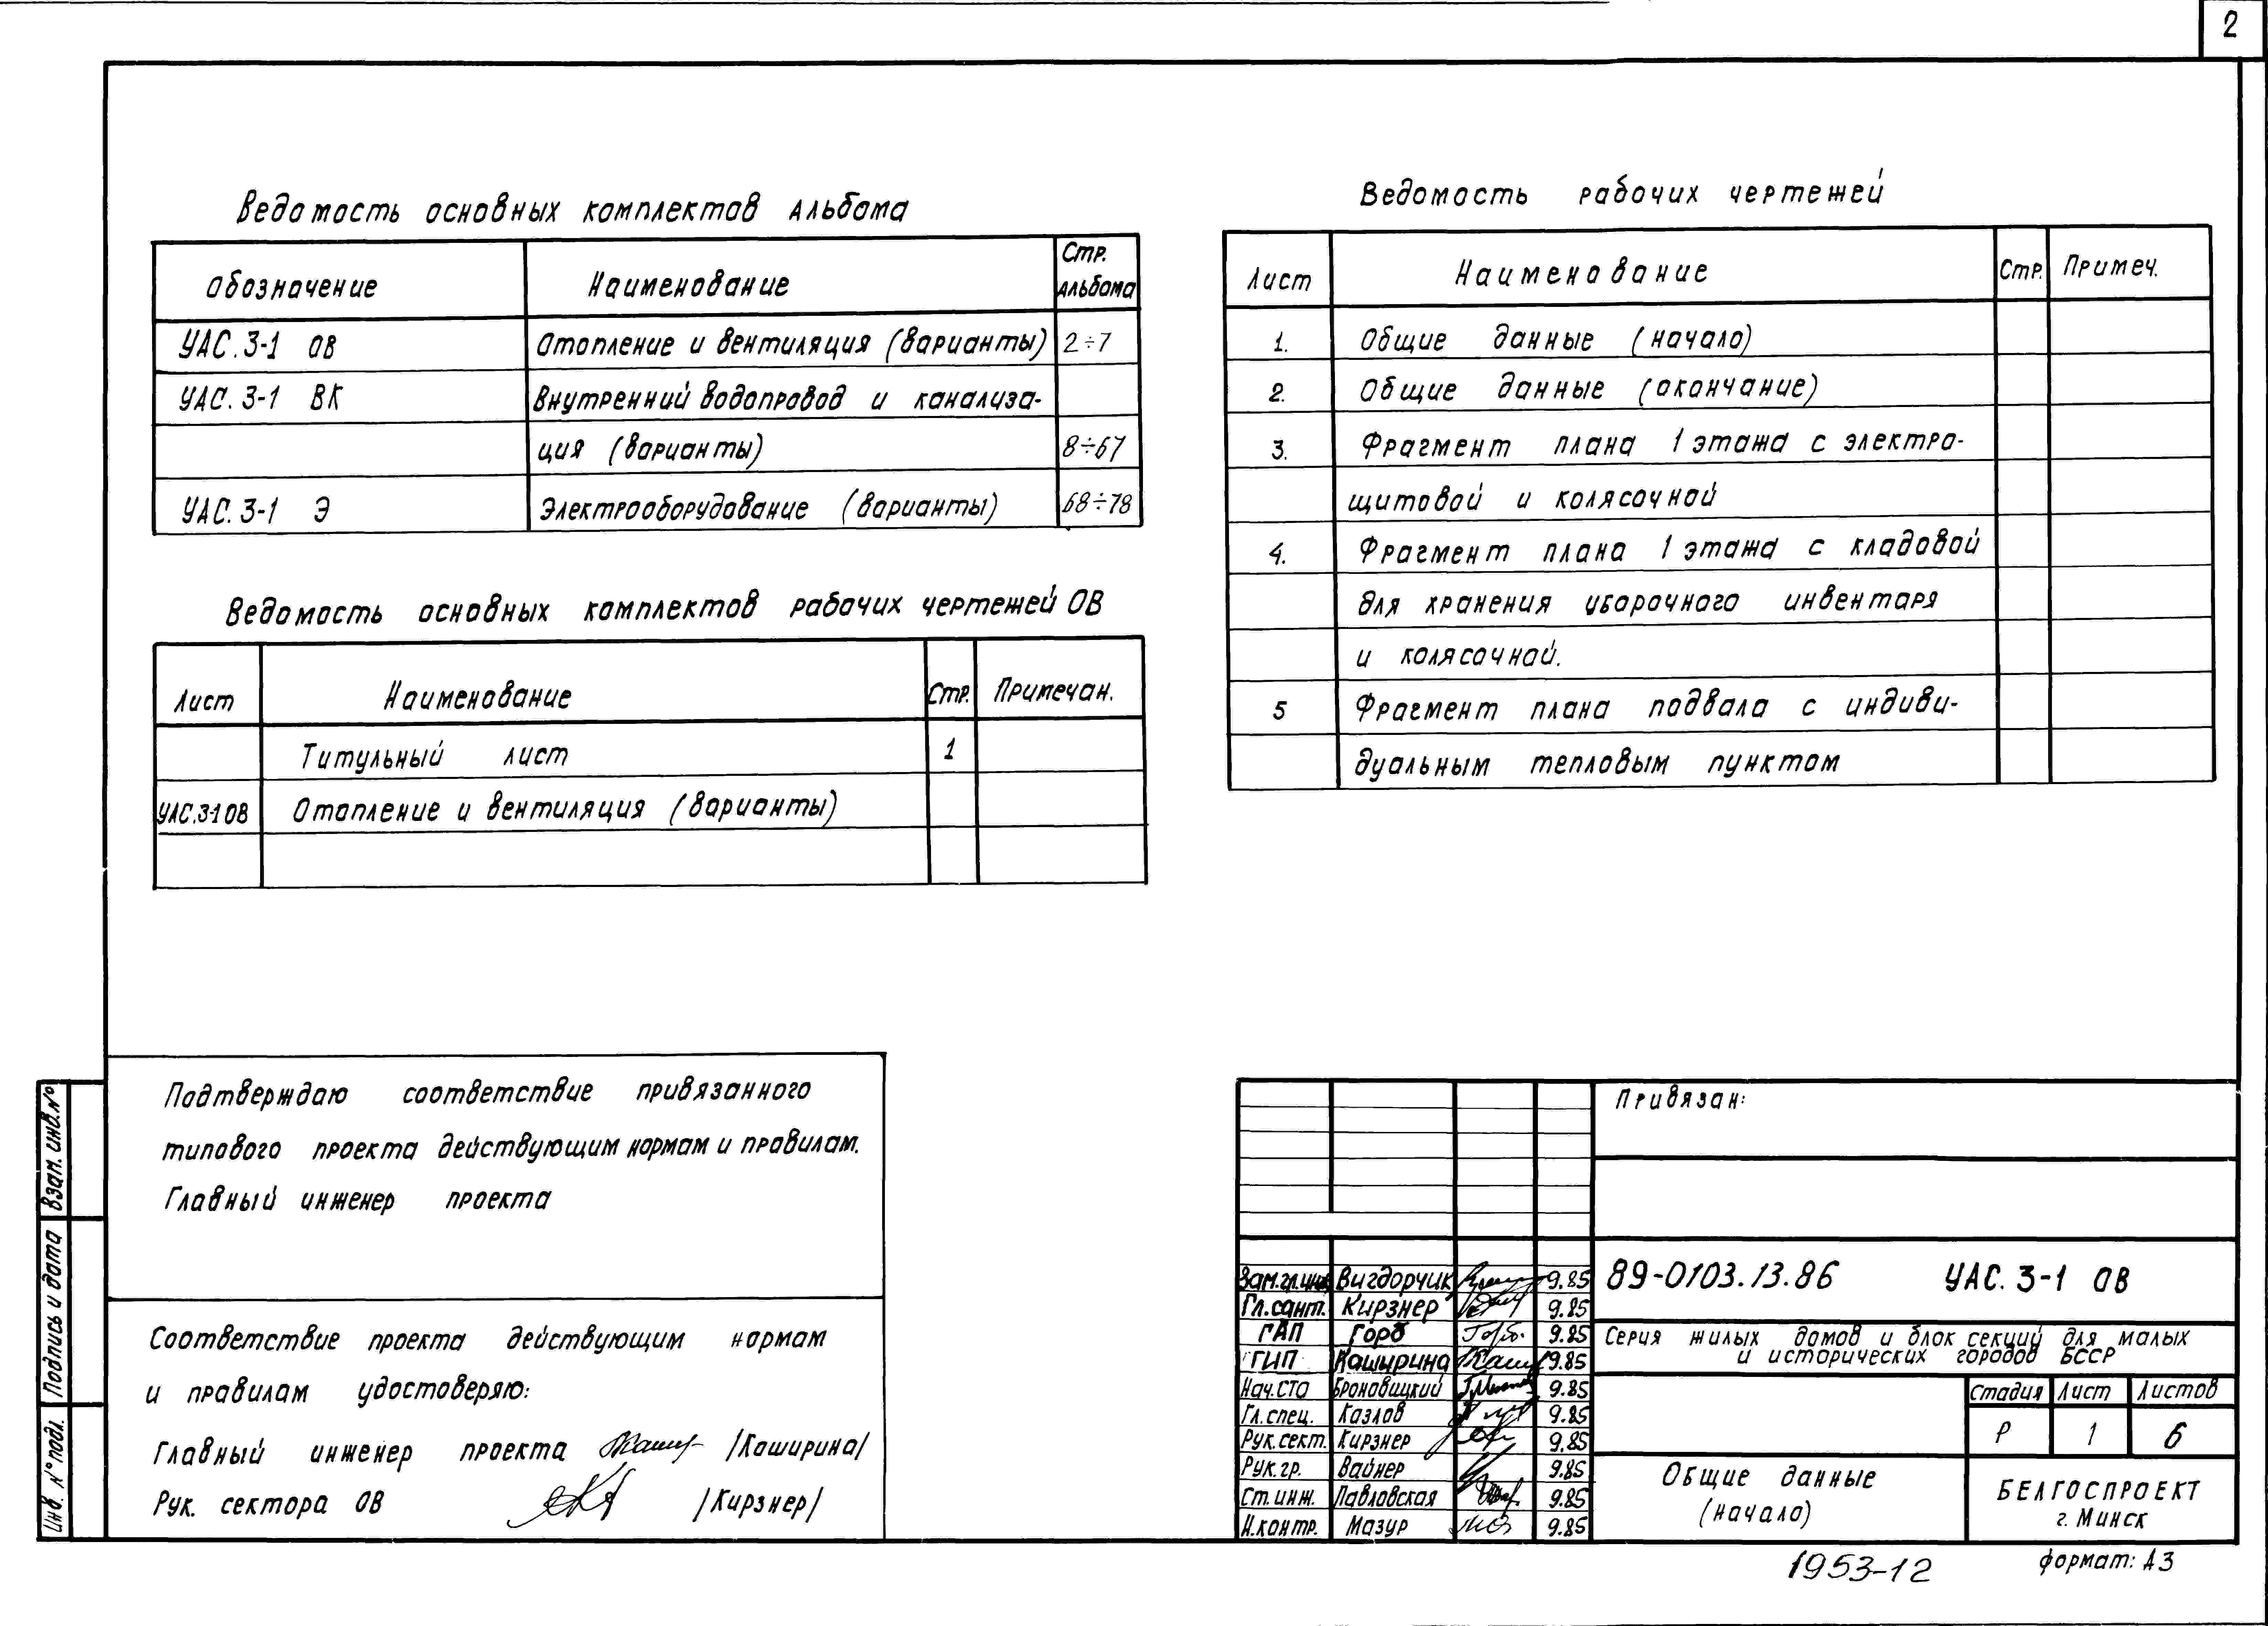 2
Ведомость основных комплектов альбома
Обозначение Наименование Стр. альбома
УАС.3-1 ОВ Отопление и вентиляция (варианты) 2÷7
УАС.3-1 ВК Внутренний водопровод и канализа-
ция (варианты) 8÷67
УАС.3-1 Э Электрооборудование (варианты) 68÷78
Ведомость основных комплектов рабочих чертежей ОВ
Лист Наименование Стр. Примечан.
Титульный лист 1
УАС.3-1 ОВ Отопление и вентиляция (варианты)
Ведомость рабочих чертежей
Лист Наименование Стр. Примеч.
1. Общие данные (начало)
2. Общие данные (окончание)
3. Фрагмент плана 1 этажа с электро-
щитовой и колясочной
4. Фрагмент плана 1 этажа с кладовой
для хранения уборочного инвентаря
и колясочной.
5 Фрагмент плана подвала с индиви-
дуальным тепловым пунктом
Подтверждаю соответствие привязанного
типового проекта действующим нормам и правилам.
Главный инженер проекта
Соответствие проекта действующим нормам
и правилам удостоверяю:
Главный инженер проекта /Каширина/
Рук. сектора ОВ /Кирзнер/
Взам. инв. №
Подпись и дата
Инв. № подл.
Привязан:
Зам.гл.инж. Вигдорчик 9.85
Гл.сант. Кирзнер 9.85
ГАП Горб 9.85
ГИП Каширина 9.85
Нач.СТО Броновицкий 9.85
Гл.спец. Козлов 9.85
Рук.сект. Кирзнер 9.85
Рук.гр. Вайнер 9.85
Ст.инж. Павловская 9.85
Н.контр. Мазур 9.85
89-0103.13.86 УАС.3-1 ОВ
Серия жилых домов и блок секций для малых
и исторических городов БССР
Стадия Лист Листов
Р 1 6
Общие данные
(начало)
БЕЛГОСПРОЕКТ
г. Минск
1953-12
формат: А3